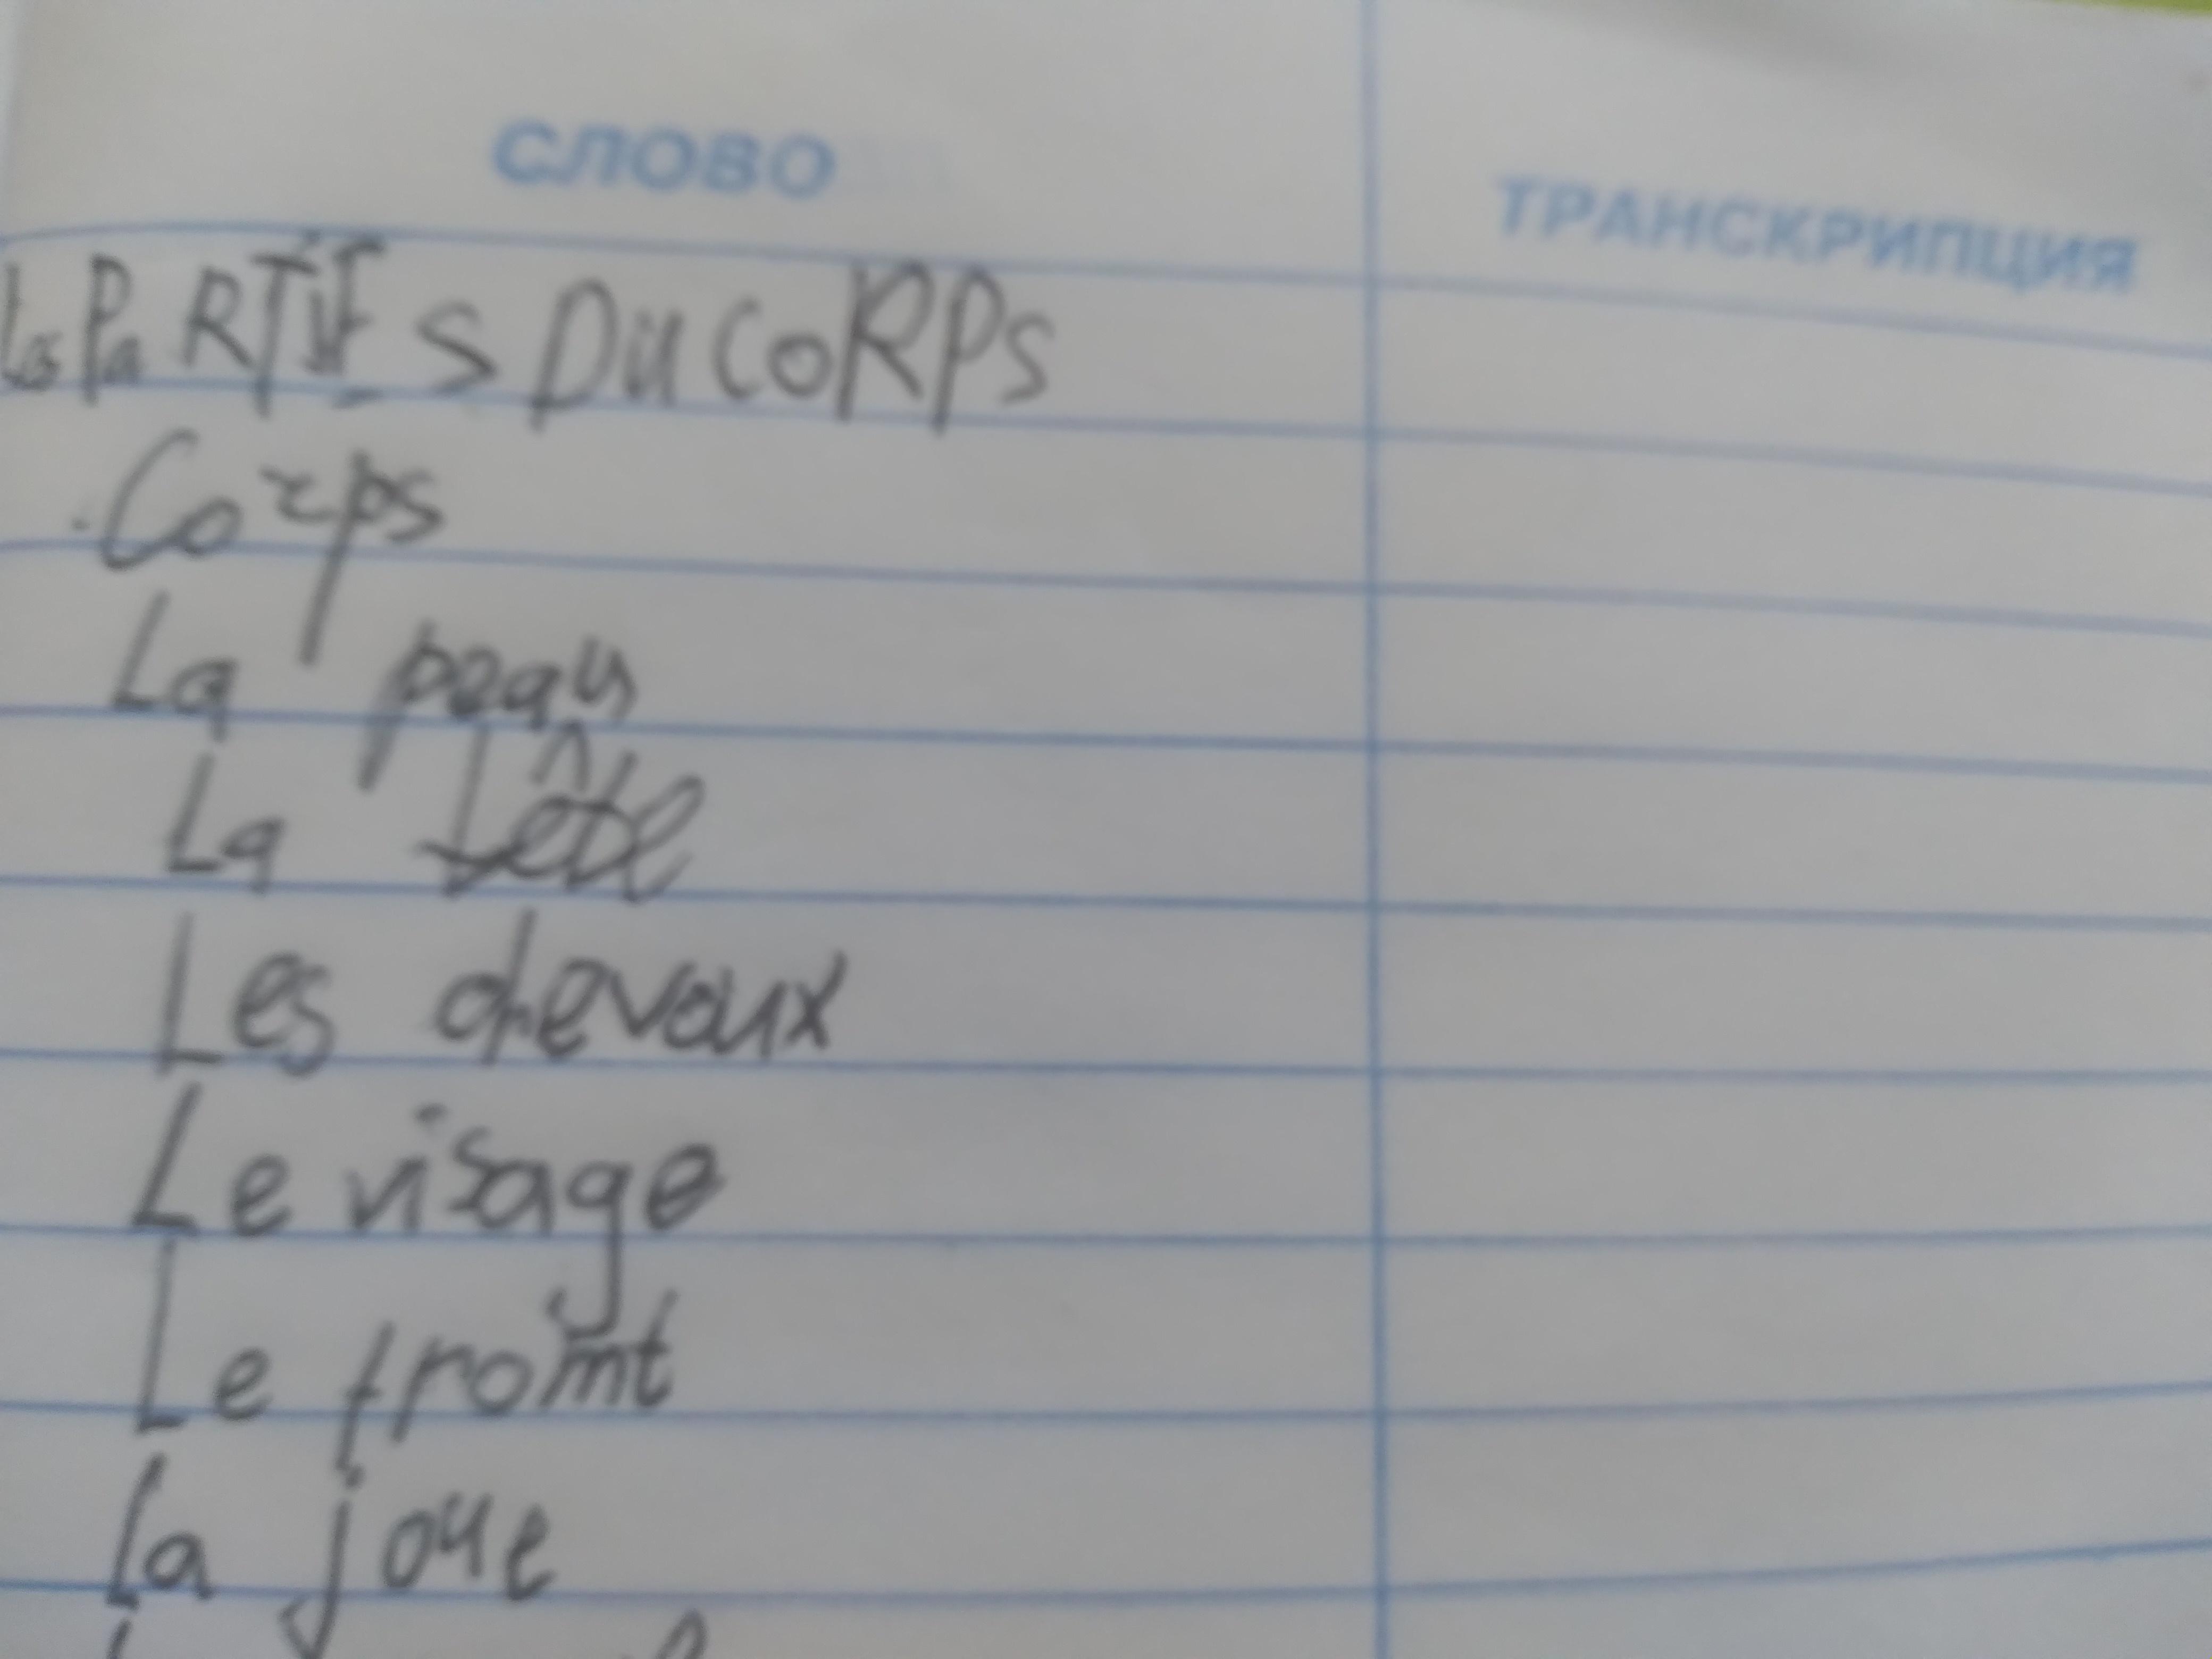 СЛОВО ТРАНСКРИПЦИЯ
Les PaRTiES DU CoRPs
Corps
La peau
La tête
Les cheveux
Le visage
Le fromt
la joue